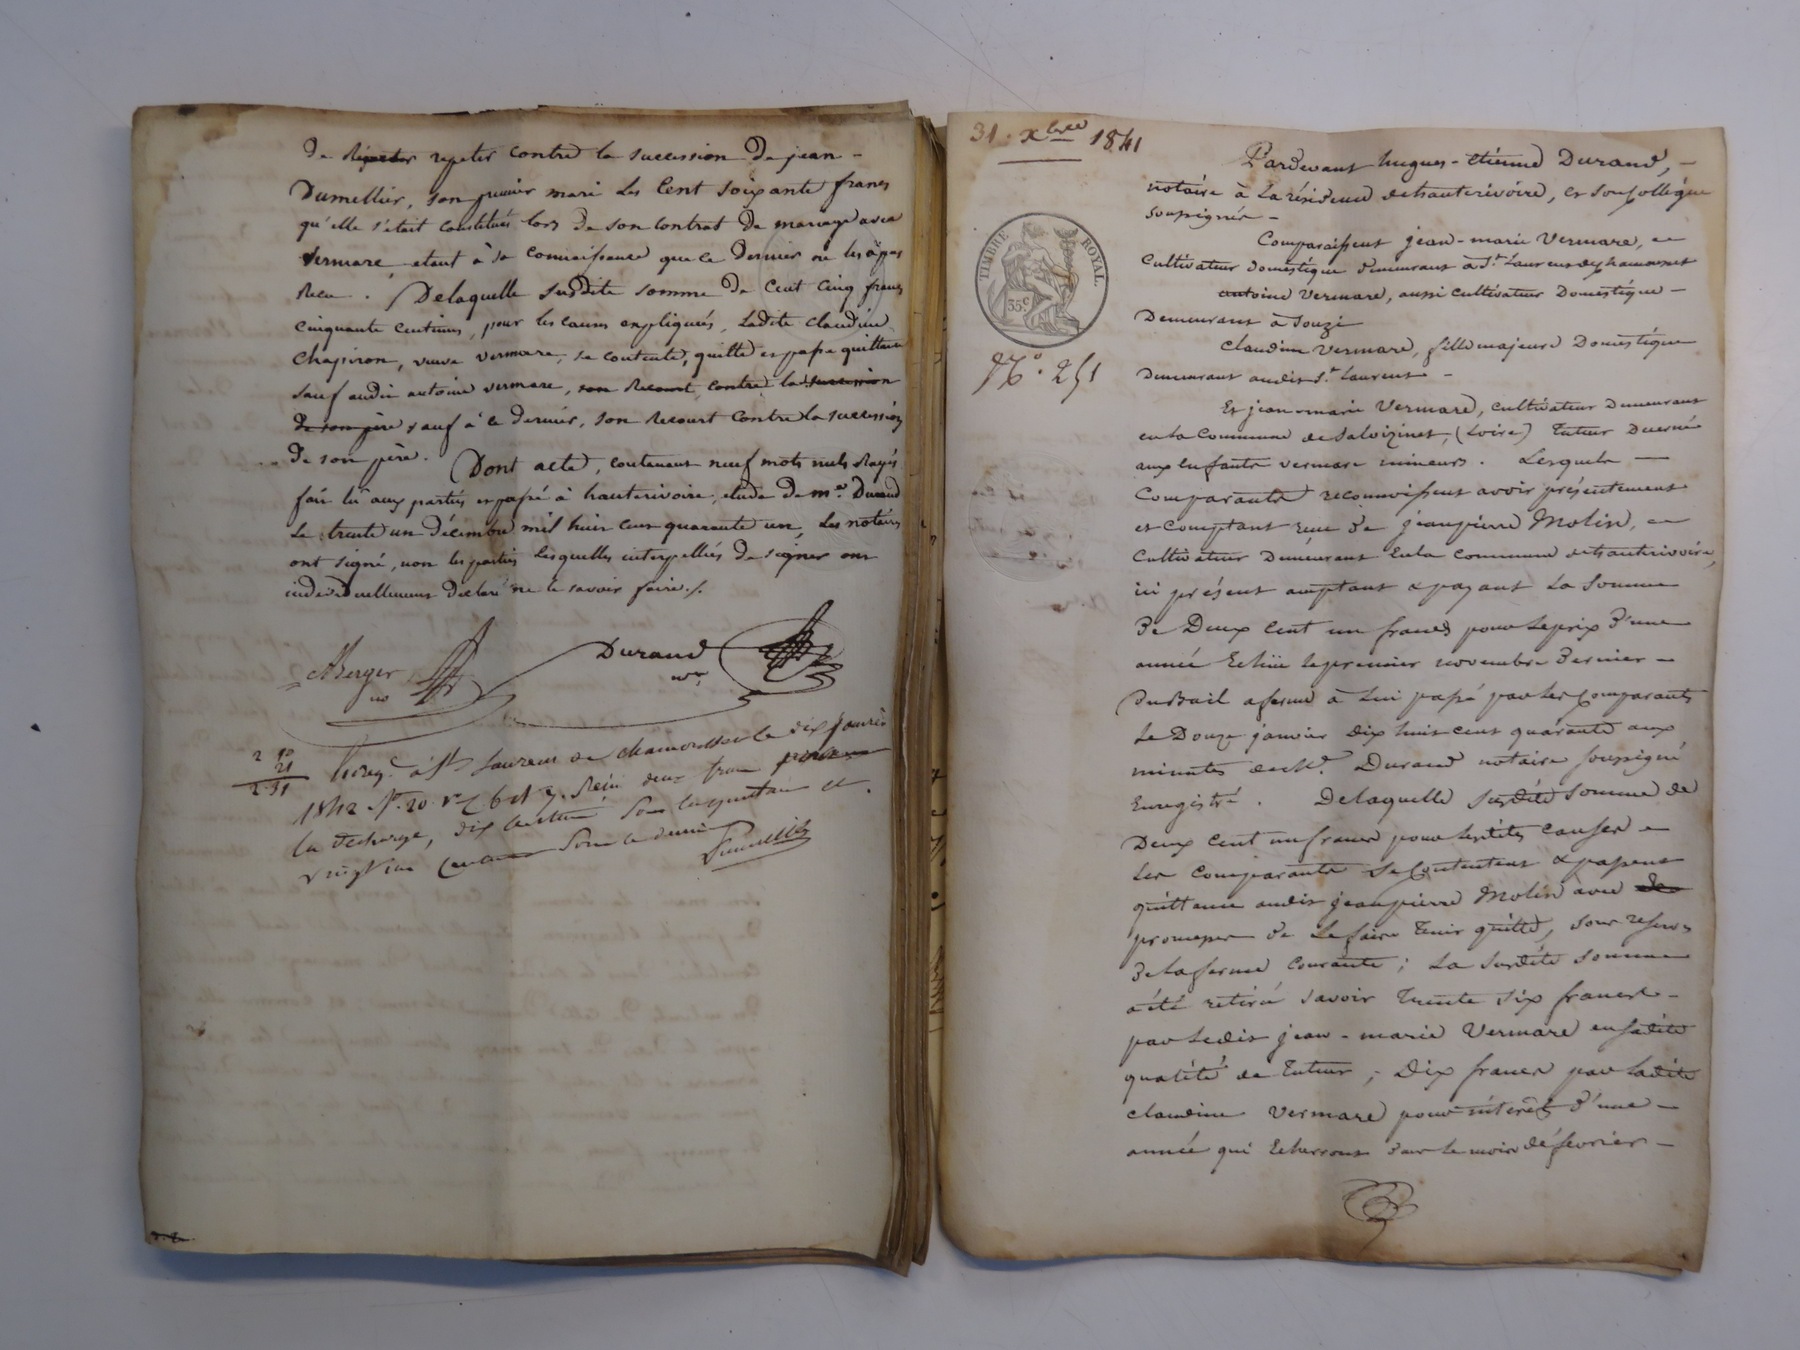 de repeter contre la succession de jean -
Dumellier, son premier mari les Cent soixante francs
qu'elle s'était Constitués lors de son Contrat de mariage avec
Vermare, etant à sa Connaissance que ce Dernier ne les a pas
Recu. Delaquelle susdite somme de Cent Cinq francs
Cinquante Centimes, pour les causes expliquées, Ladite Claudine
Chapiron, veuve vermare, se contente, quitte et passe quittance
sauf audit antoine vermare, son Recourt contre la succession
de son père sauf à ce dernier, son Recourt Contre la succession
de son père. Dont acte, contenant neuf mots nuls Rayés
fait lu aux parties et passé à hauterivoire, etude de me. Durand
Le trente un décembre mil huit cent quarante un, Les notaires
ont signé, non les parties lesquelles interpellées de signer ont
individuellement déclaré ne le savoir faire ./.
Berger
no
Durand
nre
2 10
21
2 31
Enreg. à St Laurent de chamousset le dix janvier
1842 fo. 20 Ro C 6 et 7. Reçu deux francs pour
la decharge, dix centimes pour la quittance et
vingt un centimes pour le decime
31. Xbre 1841
TIMBRE ROYAL
35 c
No. 251
Pardevant hugues-etienne Durand, -
notaire à la résidence de hauterivoire, et son Collègue
soussignés -
Comparaissent jean-marie Vermare,
Cultivateur domestique demeurant à St. Laurent de chamousset
antoine Vermare, aussi cultivateur Domestique -
Demeurant à Souzi
Claudine Vermare, fille majeure Domestique
Demeurant audit St. Laurent -
Et jean-marie Vermare, cultivateur Demeurant
en la Commune de Salvizinet, (Loire) Tuteur Decerné
aux Enfants vermare mineurs. Lesquels -
Comparants reconnaissent avoir présentement
et Comptant reçu de jean pierre Molin,
Cultivateur Demeurant En la Commune de hauterivoire,
ici présent comptant & payant La Somme
De Deux Cent un francs pour le prix d'une
année Echüe le premier novembre Dernier -
Du Bail a ferme à Lui passé par les Comparants
le Douze janvier dix huit cent quarante aux
minutes de Me. Durand notaire soussigné
Enregistré. Delaquelle Susdite Somme de
Deux Cent un francs pour lesdites Causes
les Comparants se Contentent & passent
quittance audit jean pierre Molin avec
promesse de Le faire Tenir quitte, sous reserve
De la ferme Courante; La Susdite Somme
a été retirée savoir Trente six francs -
par Ledit jean-marie Vermare en sadite
qualité de Tuteur; Dix francs par Ladite
Claudine Vermare pour intérêt d'une -
année qui Echerront dans le mois de fevrier -